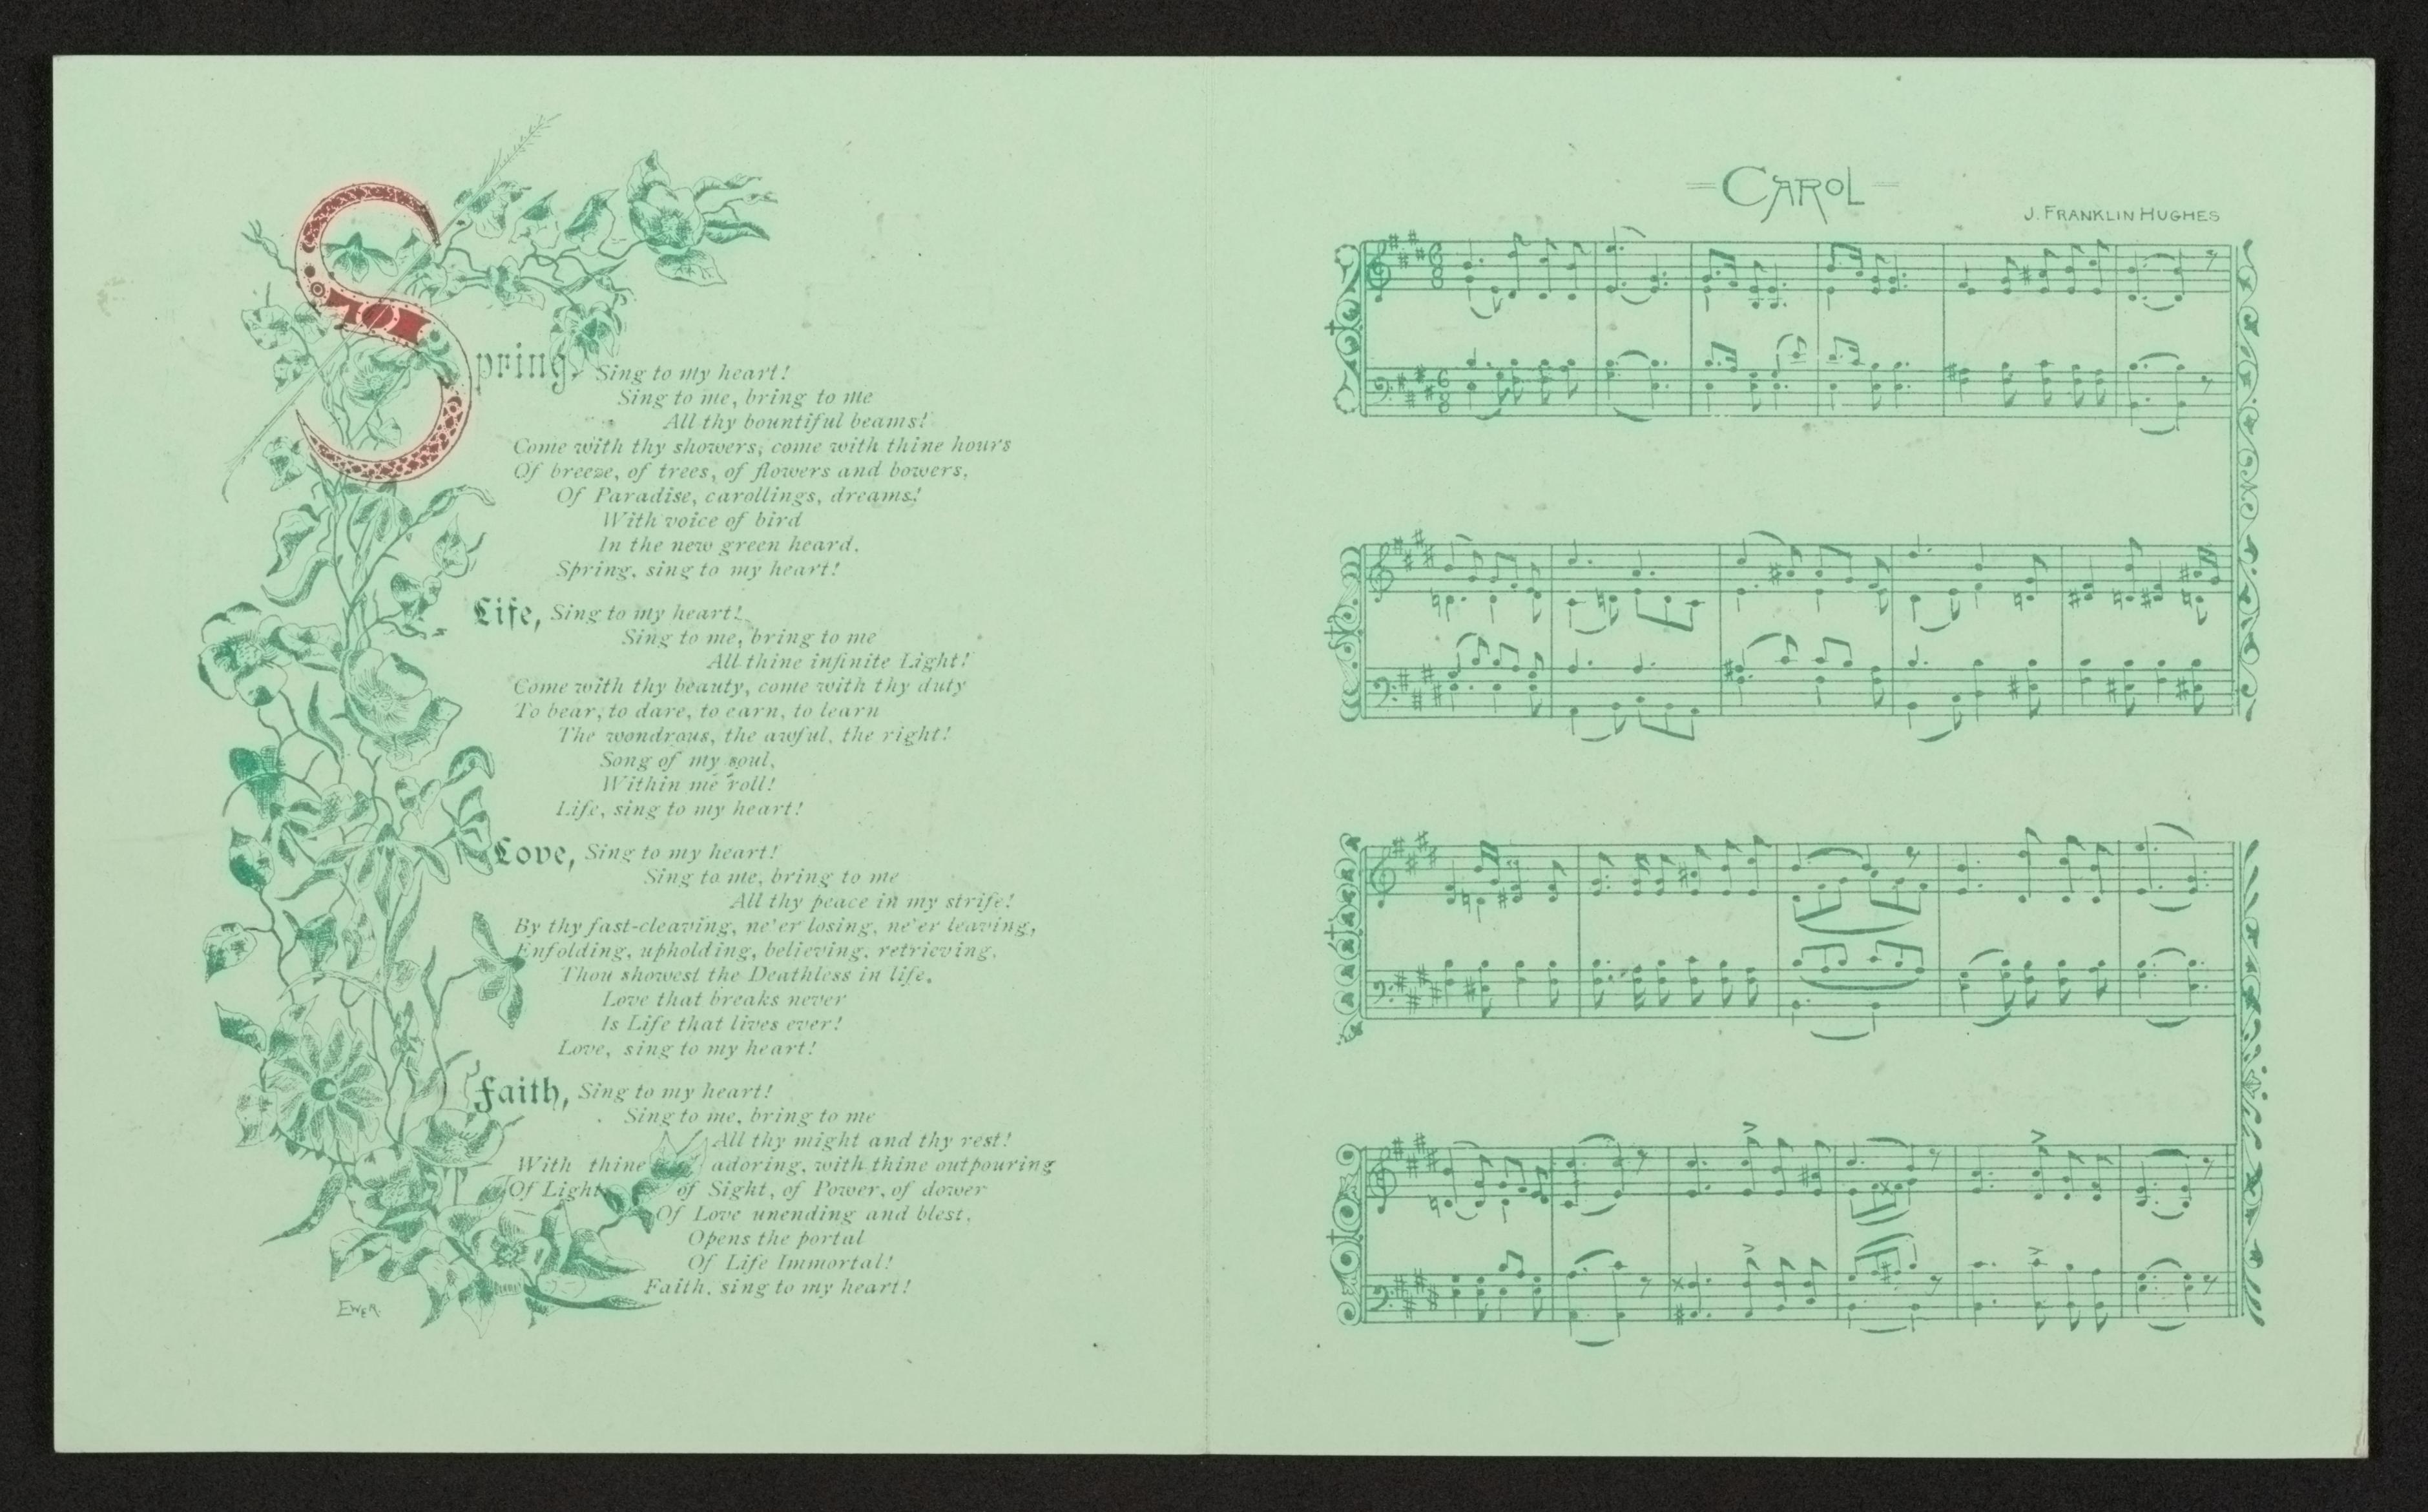 Spring, Sing to my heart!
Sing to me, bring to me
All thy bountiful beams!
Come with thy showers, come with thine hours
Of breeze, of trees, of flowers and bowers,
Of Paradise, carollings, dreams!
With voice of bird
In the new green heard,
Spring, sing to my heart!
Life, Sing to my heart!
Sing to me, bring to me
All thine infinite Light!
Come with thy beauty, come with thy duty
To bear, to dare, to earn, to learn
The wondrous, the awful, the right!
Song of my soul,
Within me roll!
Life, sing to my heart!
Love, Sing to my heart!
Sing to me, bring to me
All thy peace in my strife!
By thy fast-cleaving, ne'er losing, ne'er leaving,
Enfolding, upholding, believing, retrieving,
Thou showest the Deathless in life.
Love that breaks never
Is Life that lives ever!
Love, sing to my heart!
Faith, Sing to my heart!
Sing to me, bring to me
All thy might and thy rest!
With thine adoring, with thine outpouring
Of Light, of Sight, of Power, of dower
Of Love unending and blest,
Opens the portal
Of Life Immortal!
Faith, sing to my heart!
EWER.
CAROL
J. FRANKLIN HUGHES
6
8
6
8